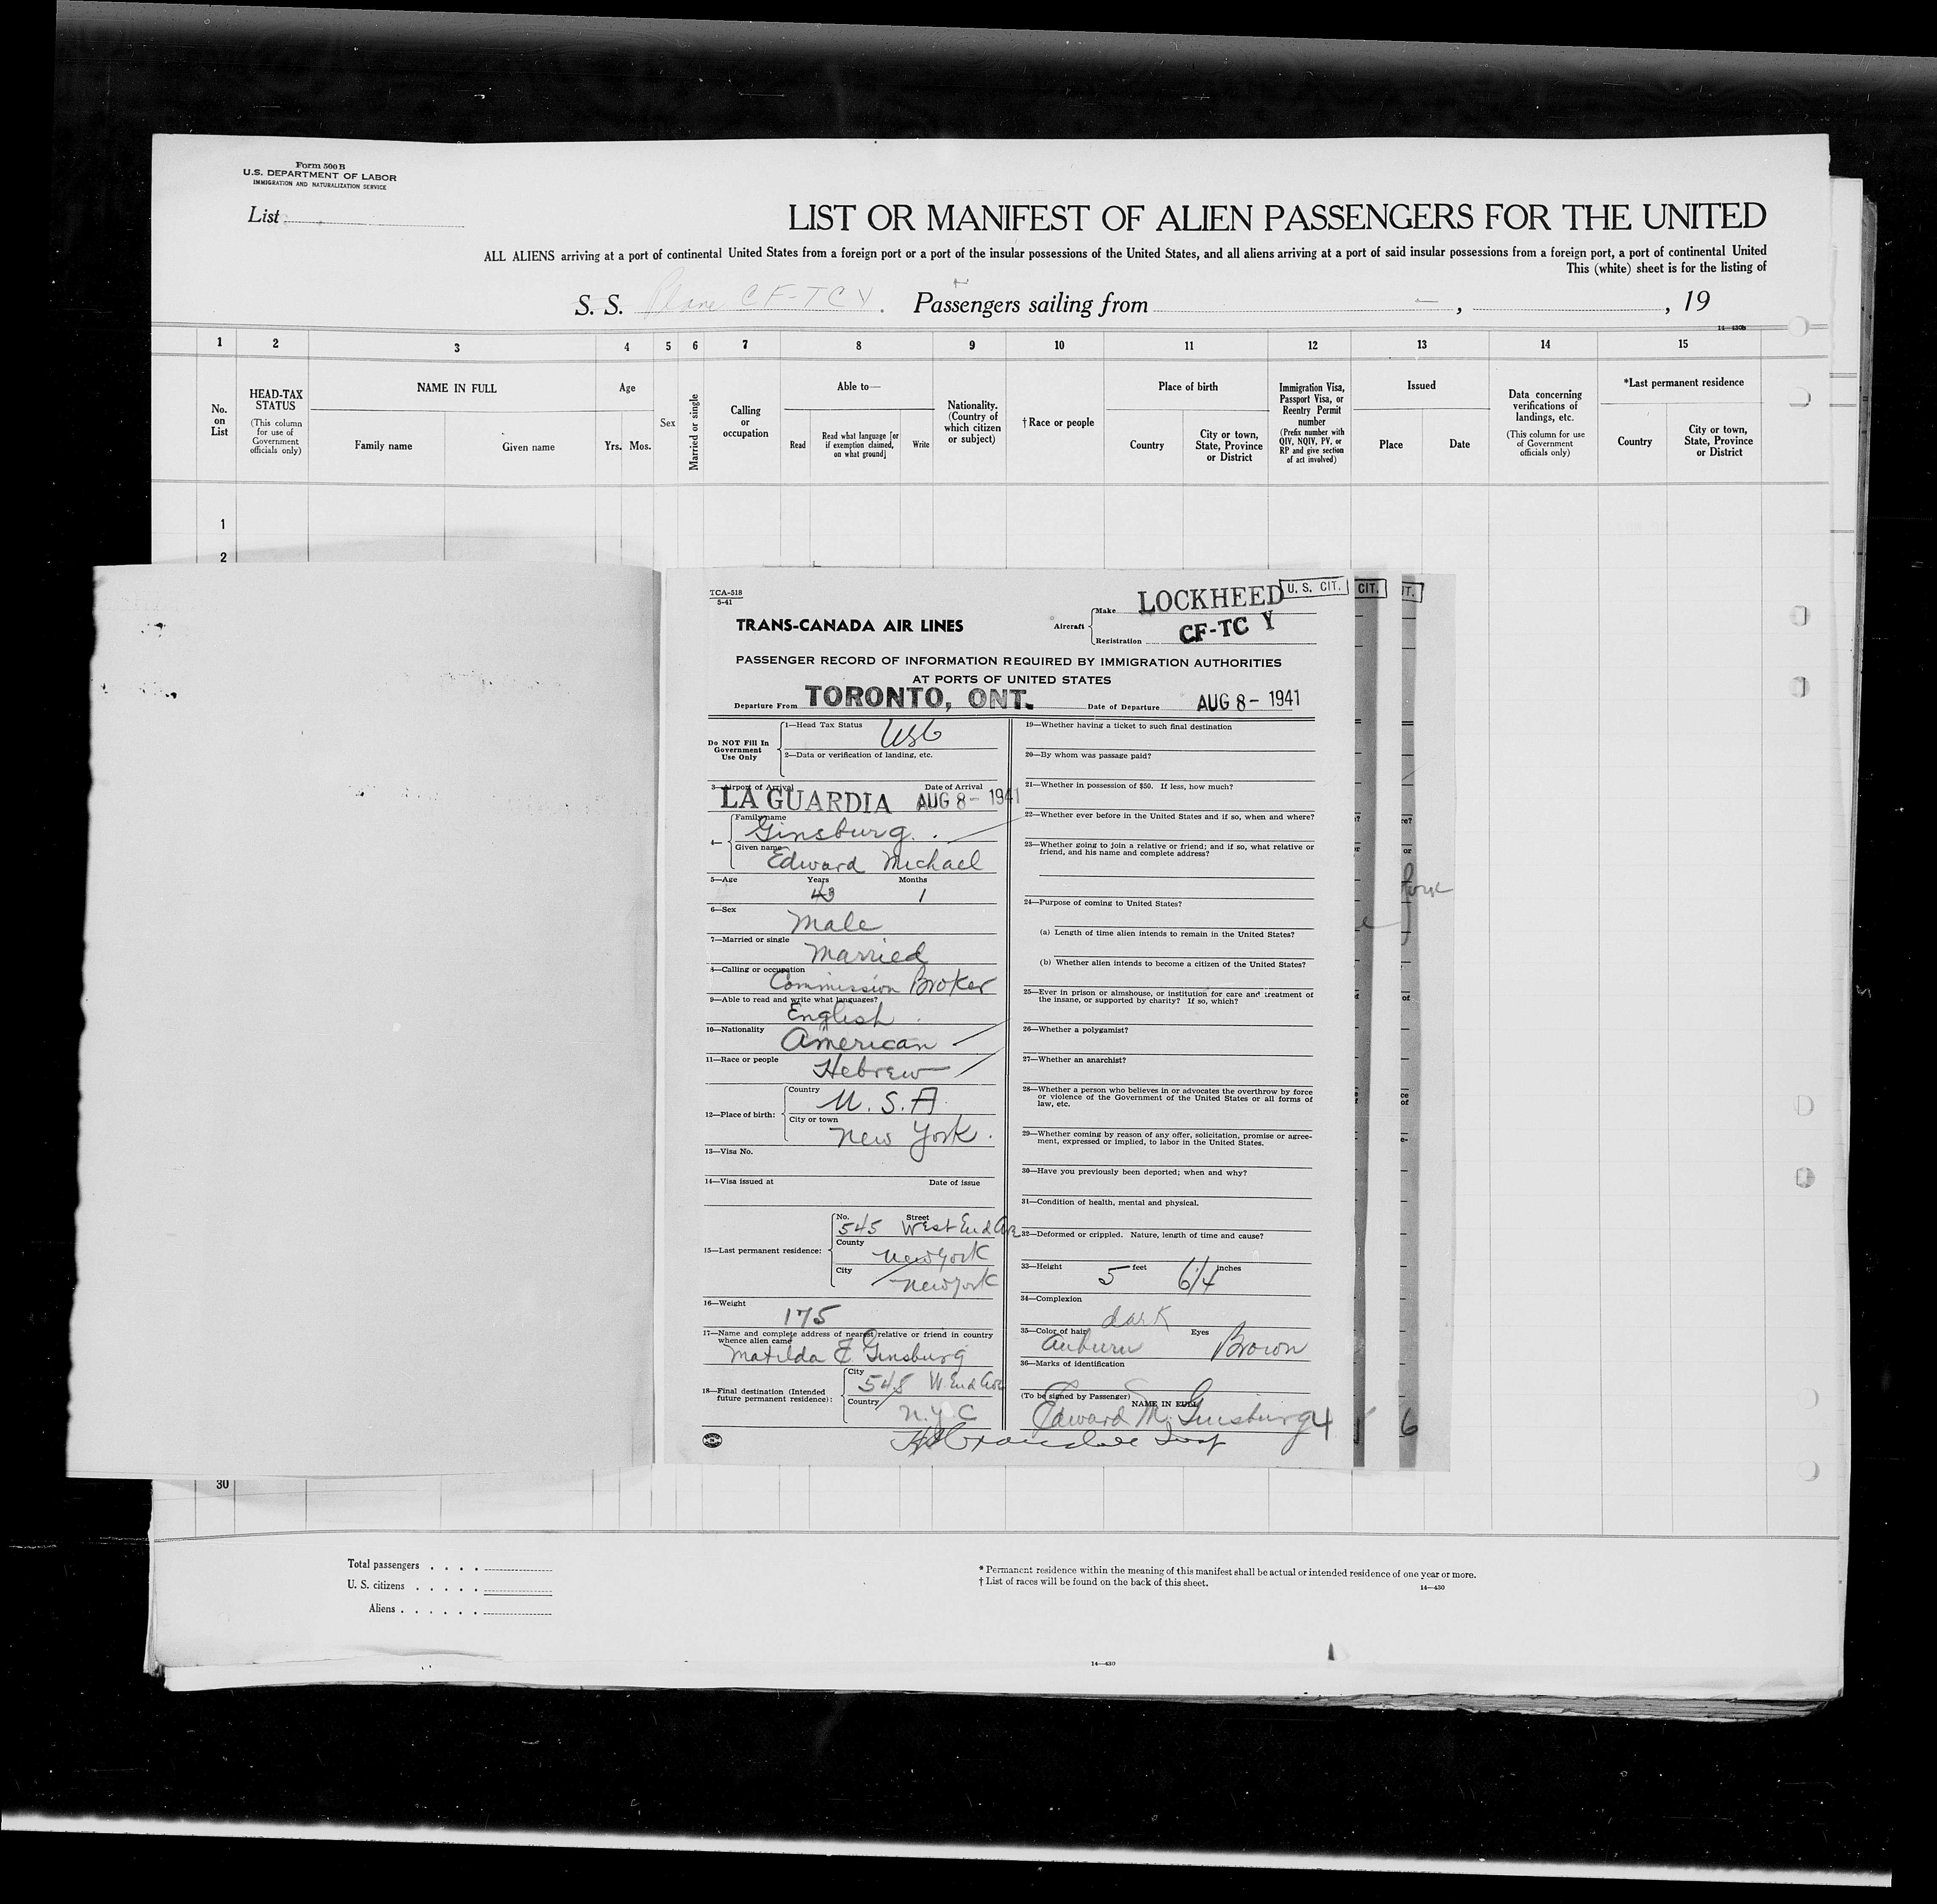 Form 500 B
U.S. DEPARTMENT OF LABOR
IMMIGRATION AND NATURALIZATION SERVICE
List
LIST OR MANIFEST OF ALIEN PASSENGERS FOR THE UNITED
ALL ALIENS arriving at a port of continental United States from a foreign port or a port of the insular possessions of the United States, and all aliens arriving at a port of said insular possessions from a foreign port, a port of continental United
This (white) sheet is for the listing of
S. S. Plane CF-TCY. Passengers sailing from , , 19
14—430b
1 2 3 4 5 6 7 8 9 10 11 12 13 14 15
No. on List
HEAD-TAX STATUS
(This column for use of Government officials only)
NAME IN FULL
Family name Given name
Age
Yrs. Mos.
Sex
Married or single
Calling or occupation
Able to—
Read
Read what language [or if exemption claimed, on what ground]
Write
Nationality. (Country of which citizen or subject)
† Race or people
Place of birth
Country
City or town, State, Province or District
Immigration Visa, Passport Visa, or Reentry Permit number
(Prefix number with QIV, NQIV, PV, or RP and give section of act involved)
Issued
Place Date
Data concerning verifications of landings, etc.
(This column for use of Government officials only)
*Last permanent residence
Country
City or town, State, Province or District
1
2
TCA-518
5-41
TRANS-CANADA AIR LINES
Aircraft
Make LOCKHEED
Registration CF-TC Y
U. S. CIT.
CIT.
IT.
PASSENGER RECORD OF INFORMATION REQUIRED BY IMMIGRATION AUTHORITIES
AT PORTS OF UNITED STATES
Departure From TORONTO, ONT. Date of Departure AUG 8 - 1941
Do NOT Fill In Government Use Only
1—Head Tax Status USC
2—Data or verification of landing, etc.
3—Airport of Arrival Date of Arrival
LA GUARDIA AUG 8 - 1941
4—
Family name
Ginsburg.
Given name
Edward Michael
5—Age Years Months
43 1
6—Sex
Male
7—Married or single
Married
8—Calling or occupation
Commission Broker
9—Able to read and write what languages?
English
10—Nationality
American
11—Race or people
Hebrew
12—Place of birth:
Country
U. S. A.
City or town
New York.
13—Visa No.
14—Visa issued at Date of issue
15—Last permanent residence:
No. Street
545 West End Ave
County
New York
City
New York
16—Weight
175
17—Name and complete address of nearest relative or friend in country
whence alien came
Matilda E Ginsburg
18—Final destination (Intended
future permanent residence):
City
545 W. End Ave
Country
N.Y.C
19—Whether having a ticket to such final destination
20—By whom was passage paid?
21—Whether in possession of $50. If less, how much?
22—Whether ever before in the United States and if so, when and where?
23—Whether going to join a relative or friend; and if so, what relative or
friend, and his name and complete address?
24—Purpose of coming to United States?
(a) Length of time alien intends to remain in the United States?
(b) Whether alien intends to become a citizen of the United States?
25—Ever in prison or almshouse, or institution for care and treatment of
the insane, or supported by charity? If so, which?
26—Whether a polygamist?
27—Whether an anarchist?
28—Whether a person who believes in or advocates the overthrow by force
or violence of the Government of the United States or all forms of
law, etc.
29—Whether coming by reason of any offer, solicitation, promise or agree-
ment, expressed or implied, to labor in the United States.
30—Have you previously been deported; when and why?
31—Condition of health, mental and physical.
32—Deformed or crippled. Nature, length of time and cause?
33—Height 5 feet 6 1/4 inches
34—Complexion
dark
35—Color of hair Eyes
auburn Brown
36—Marks of identification
(To be signed by Passenger)
NAME IN FULL
Edward M. Ginsburg 4
6
30
Total passengers
U. S. citizens
Aliens
* Permanent residence within the meaning of this manifest shall be actual or intended residence of one year or more.
† List of races will be found on the back of this sheet.
14—430
14—430